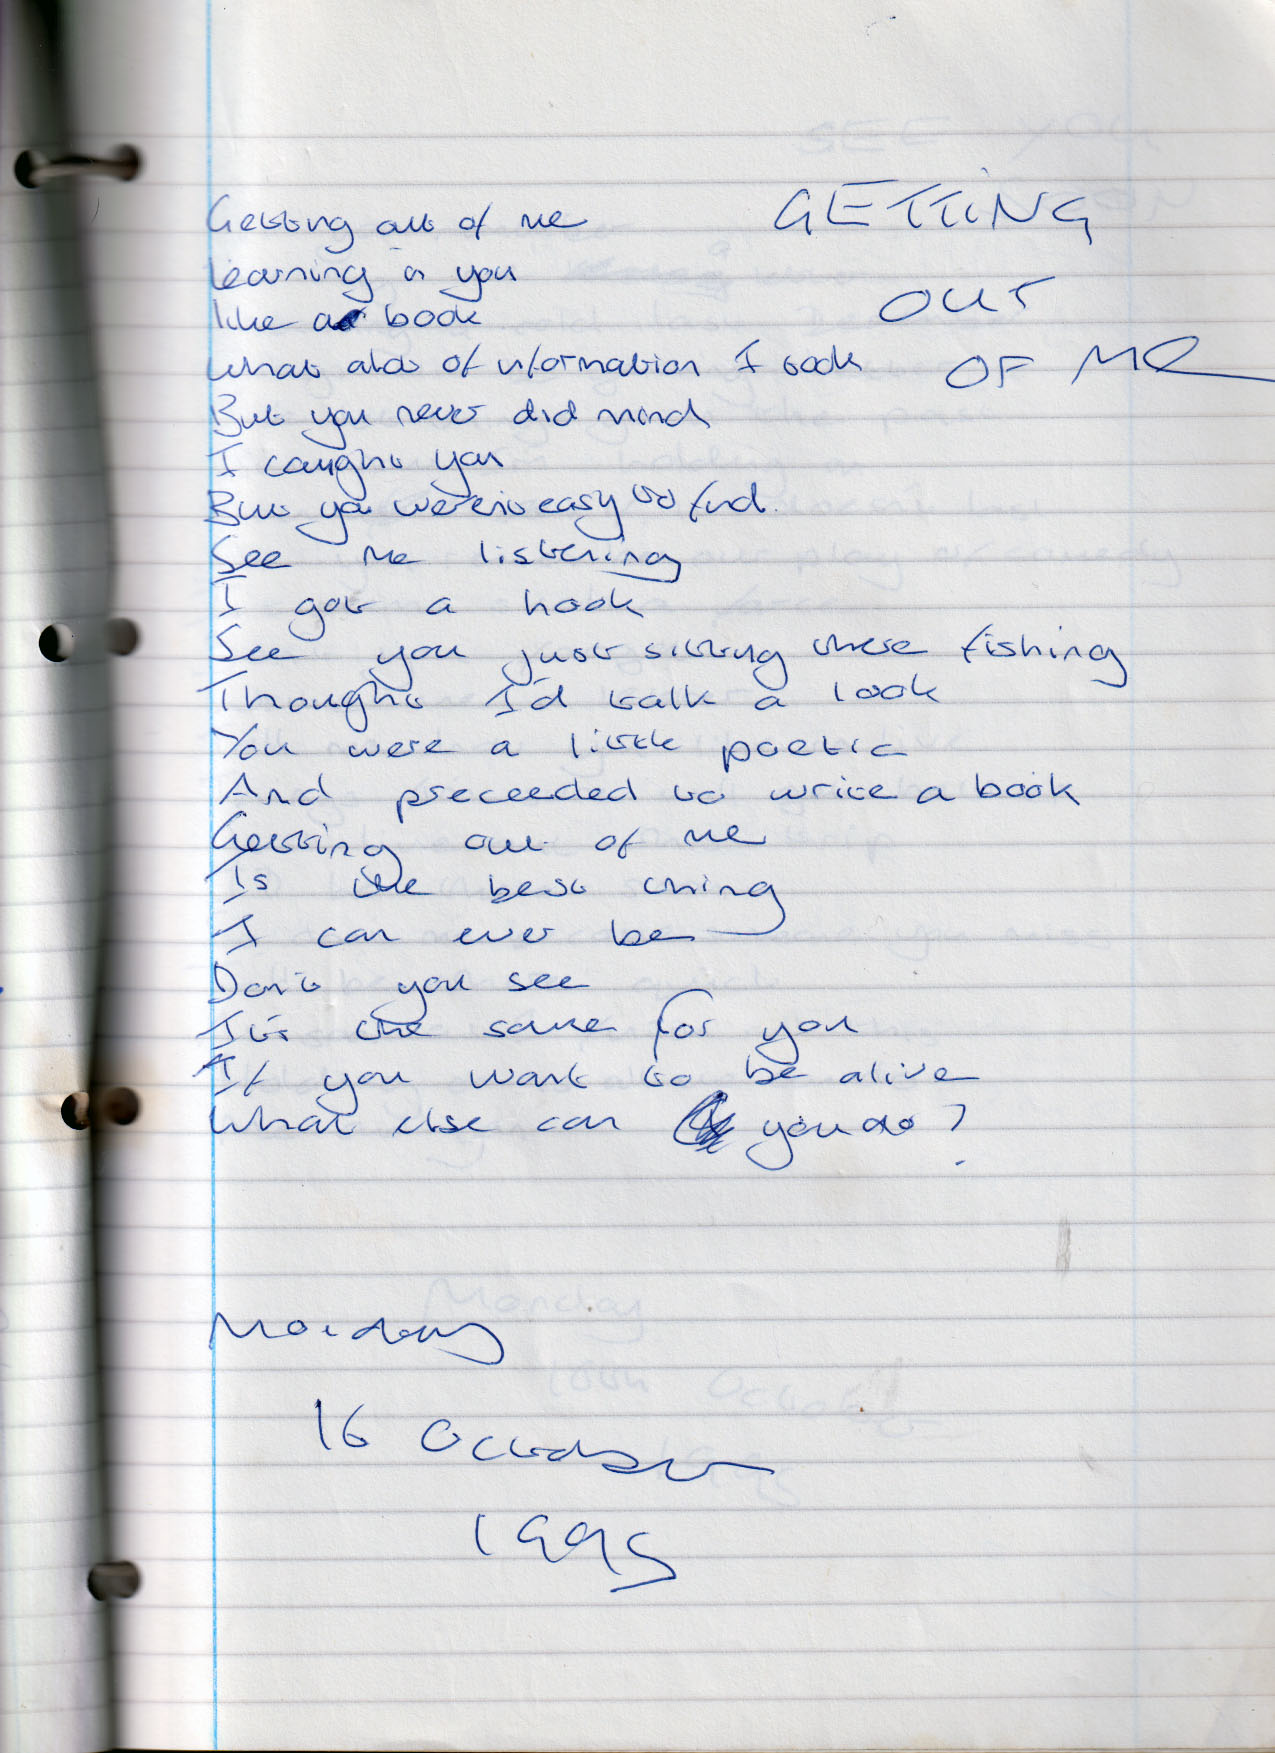 GETTING
OUT
OF ME
Getting out of me
Learning a you
like a book
What alot of information I took
But you never did mind
I caught you
But you weren't easy to find.
See me listening
I got a hook
See you just sitting there fishing
Thought I'd talk a look
You were a little poetic
And preceeded to write a book
Getting out of me
Is the best thing
I can ever be
Don't you see
It's the same for you
If you want to be alive
What else can you do?
Monday
16 October
1995